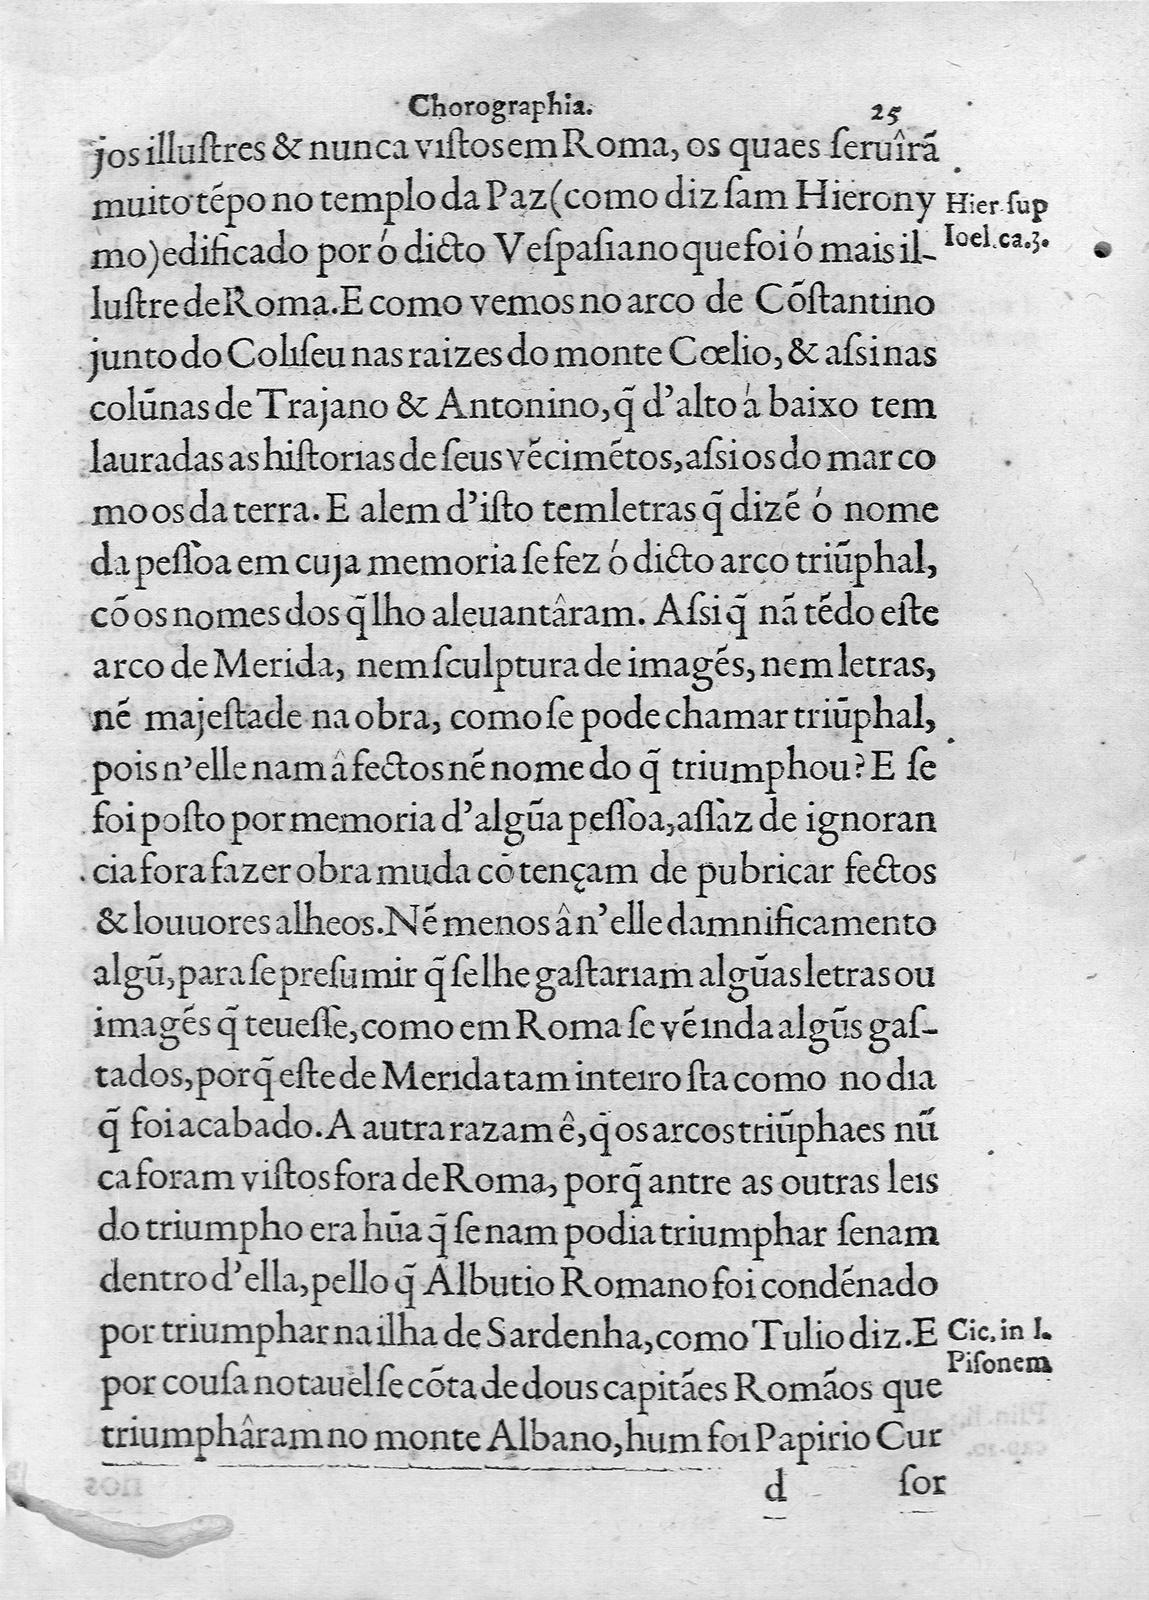 Chorographia. 25
jos illuſtres & nunca viſtos em Roma, os quaes ſeruîrã
muito tẽpo no templo da Paz (como diz ſam Hierony
mo) edificado por ó dicto Veſpaſiano que foi ó mais il-
luſtre de Roma. E como vemos no arco de Cõſtantino
junto do Coliſeu nas raizes do monte Cœlio, & aſsi nas
colũnas de Trajano & Antonino, q̃ d'alto á baixo tem
lauradas as hiſtorias de ſeus vẽcimẽtos, aſsi os do mar co
mo os da terra. E alem d'iſto tem letras q̃ dizẽ ó nome
da peſſòa em cuja memoria ſe fez ó dicto arco triũphal,
cõ os nomes dos q̃ lho aleuantâram. Aſsi q̃ nã tẽdo eſte
arco de Merida, nem ſculptura de imagẽs, nem letras,
nẽ majeſtade na obra, como ſe pode chamar triũphal,
pois n'elle nam â fectos nẽ nome do q̃ triumphou? E ſe
foi poſto por memoria d'algũa peſſòa, aſſàz de ignoran
cia fora fazer obra muda cõ tençam de pubricar fectos
& louuores alheos. Nẽ menos â n'elle damnificamento
algũ, para ſe preſumir q̃ ſe lhe gaſtariam algũas letras ou
imagẽs q̃ teueſſe, como em Roma ſe vẽ inda algũs gaſ-
tados, porq̃ eſte de Merida tam inteiro ſta como no dia
q̃ foi acabado. A autra razam ê, q̃ os arcos triũphaes nũ
ca foram viſtos fora de Roma, porq̃ antre as outras leis
do triumpho era hũa q̃ ſe nam podia triumphar ſenam
dentro d'ella, pello q̃ Albutio Romano foi condẽnado
por triumphar na ilha de Sardenha, como Tulio diz. E
por couſa notauel ſe cõta de dous capitães Romãos que
triumphâram no monte Albano, hum foi Papirio Cur
d ſor
Hier. ſup
Ioel. ca. 3.
Cic. in L.
Piſonem